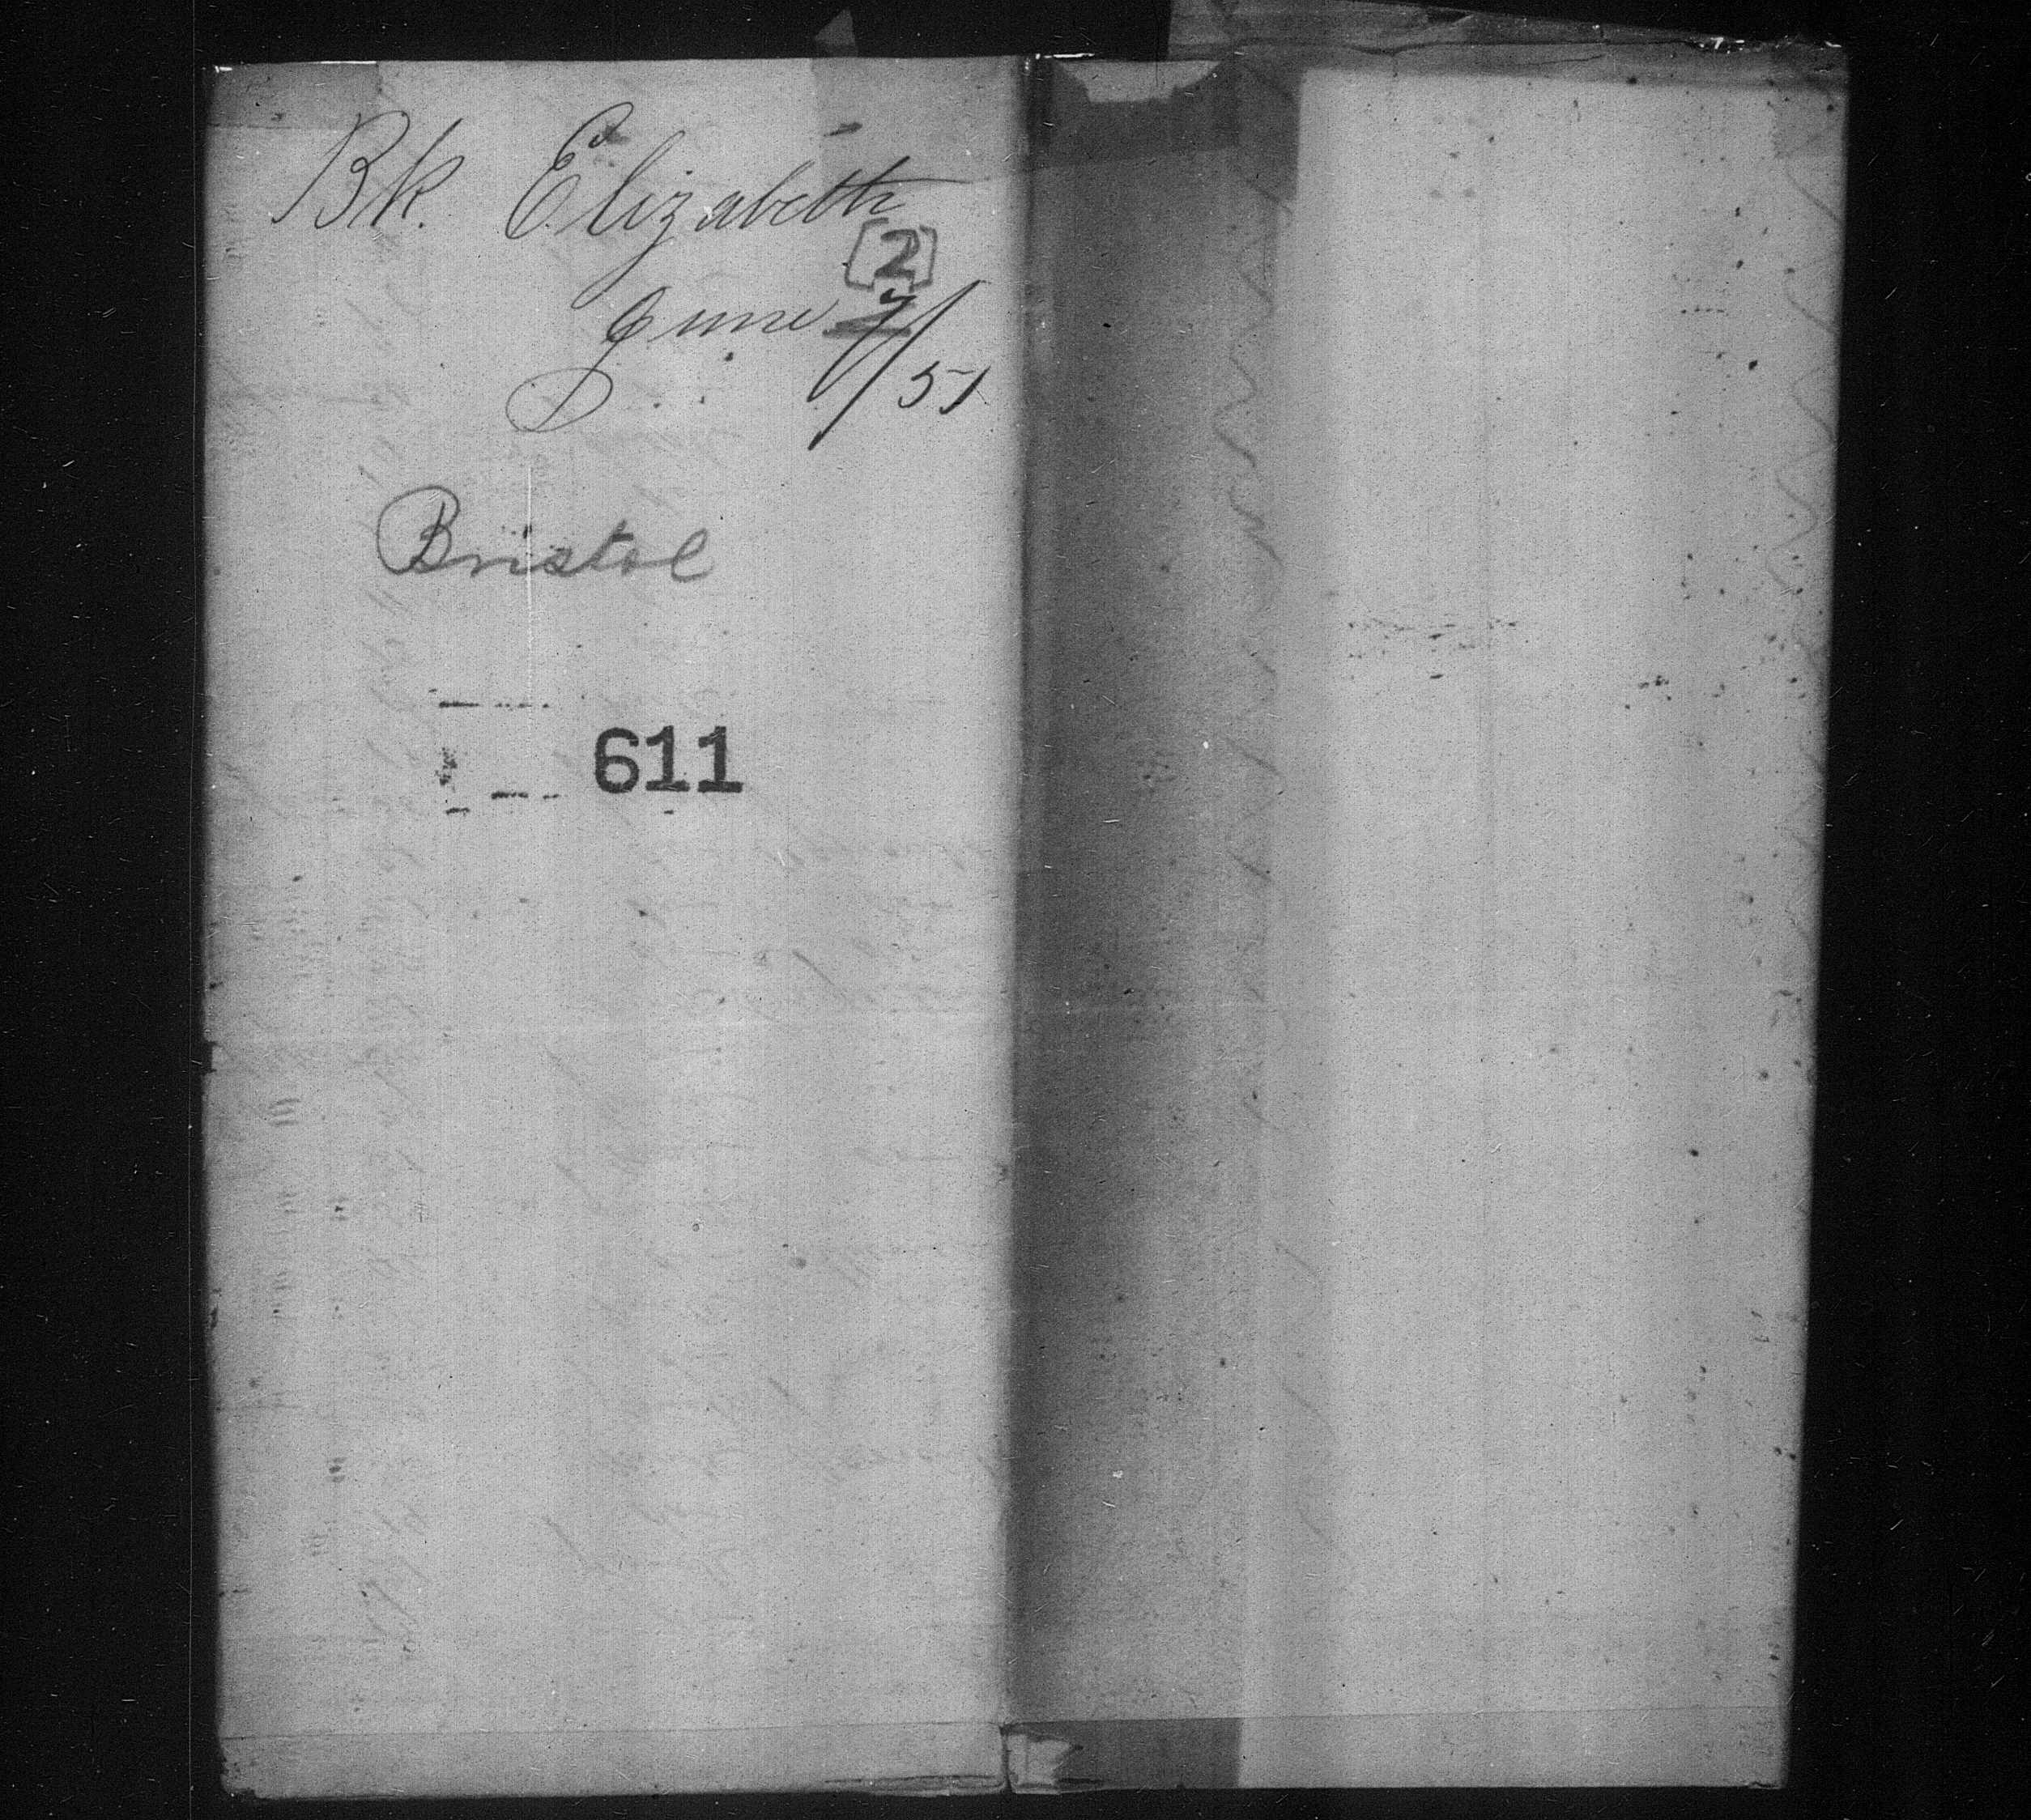 Bk. Elizabeth
[2]
June 7/51
Bristol
611